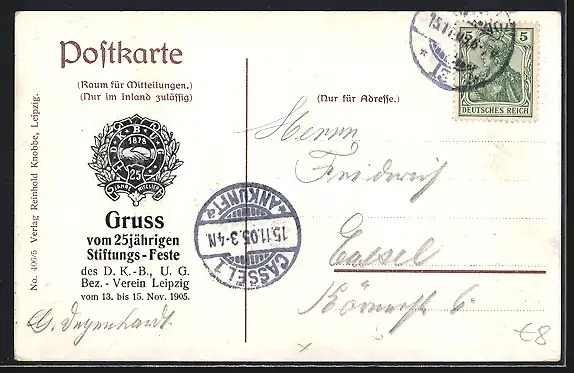 Postkarte
(Raum für Mitteilungen.)
(Nur im Inland zulässig)
(Nur für Adresse.)
No. 4065 Verlag Reinhold Knobbe, Leipzig.
1879
25
Gruss
vom 25jährigen
Stiftungs-Feste
des D. K.-B., U. G.
Bez.-Verein Leipzig
vom 13. bis 15. Nov. 1905.
G. Degenhardt
Herrn
Friedrich
Cassel
Körnerstr 6.
5 5
DEUTSCHES REICH
CASSEL 1
15.11.05.3-4N.
*ANKUNFT a
€8